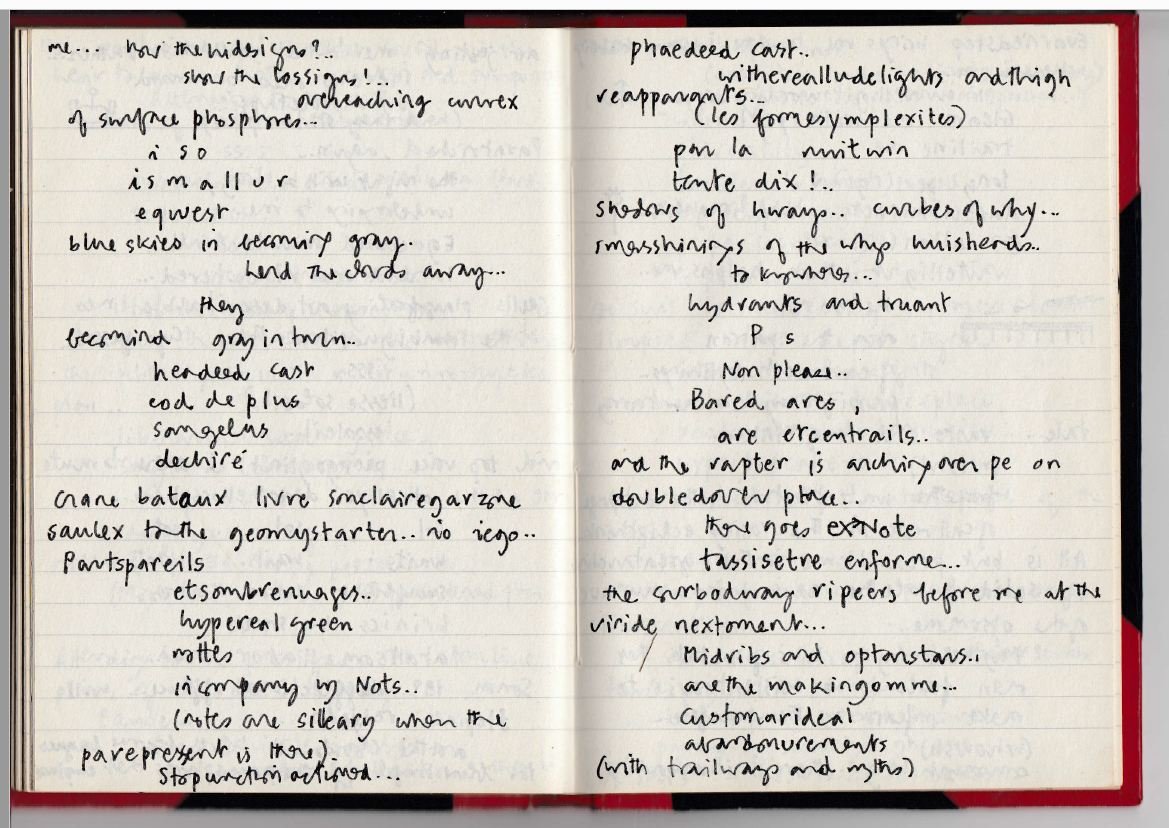 me... how the hidesigns?..
show the lossigns!..
orcheaching currex
of surface phosphores...
i s o
i s m a l l u r
eqwest
blue skies in becoming gray..
herd the clouds away...
they
becomind gray in turn..
headeed cast
cod de plus
sangelus
dechiré
crane bataux livre sonclairegarzone
saulex to the geomystarter.. no iego..
Partspareils
etsombrenuages...
hypereal green
mottes
in company by Nots..
(notes are silleary when the
parepresent is there)
Stopunctionactioned...
phaedeed cast..
witherealludelights and thigh
reapparants...
(les formesymplexites)
par la nuitwin
tante dix!..
shadows of hways.. curbes of why...
smasshinings of the whys huisherds..
to knywheres...
hydrants and truant
P s
Non please..
Bared ares,
are ercentrails..
and the rapter is arching over pe on
doubledover place..
there goes exNote
tassisetre enforme...
the surbodway ripeers before me at the
viride nextoment...
Midribs and optanstans..
are the makingomme..
customarideal
abandonurements
(with trailways and myths)